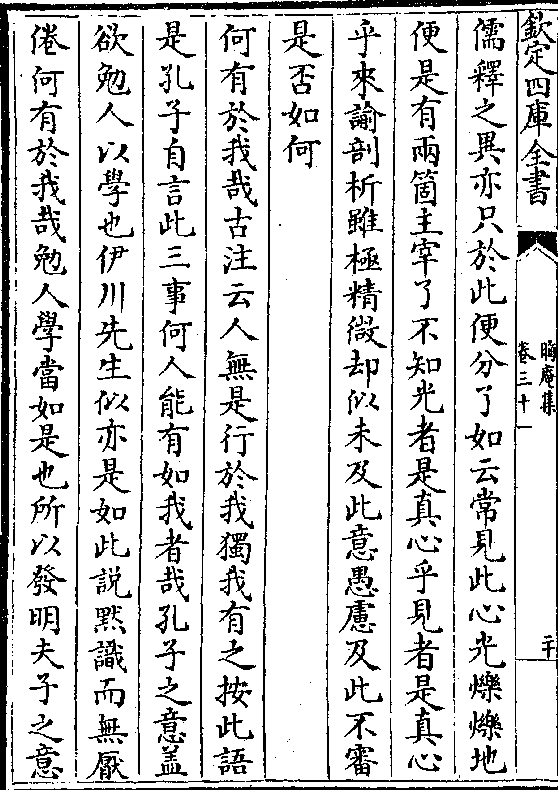 欽定四庫全書
晦庵集
卷三十一
二十
儒釋之異亦只於此便分了如云常見此心光爍爍地
便是有兩箇主宰了不知光者是真心乎見者是真心
乎來諭剖析雖極精微却似未及此意愚慮及此不審
是否如何
何有於我哉古注云人無是行於我獨我有之按此語
是孔子自言此三事何人能有如我者哉孔子之意盖
欲勉人以學也伊川先生似亦是如此說黙識而無厭
倦何有於我哉勉人學當如是也所以發明夫子之意